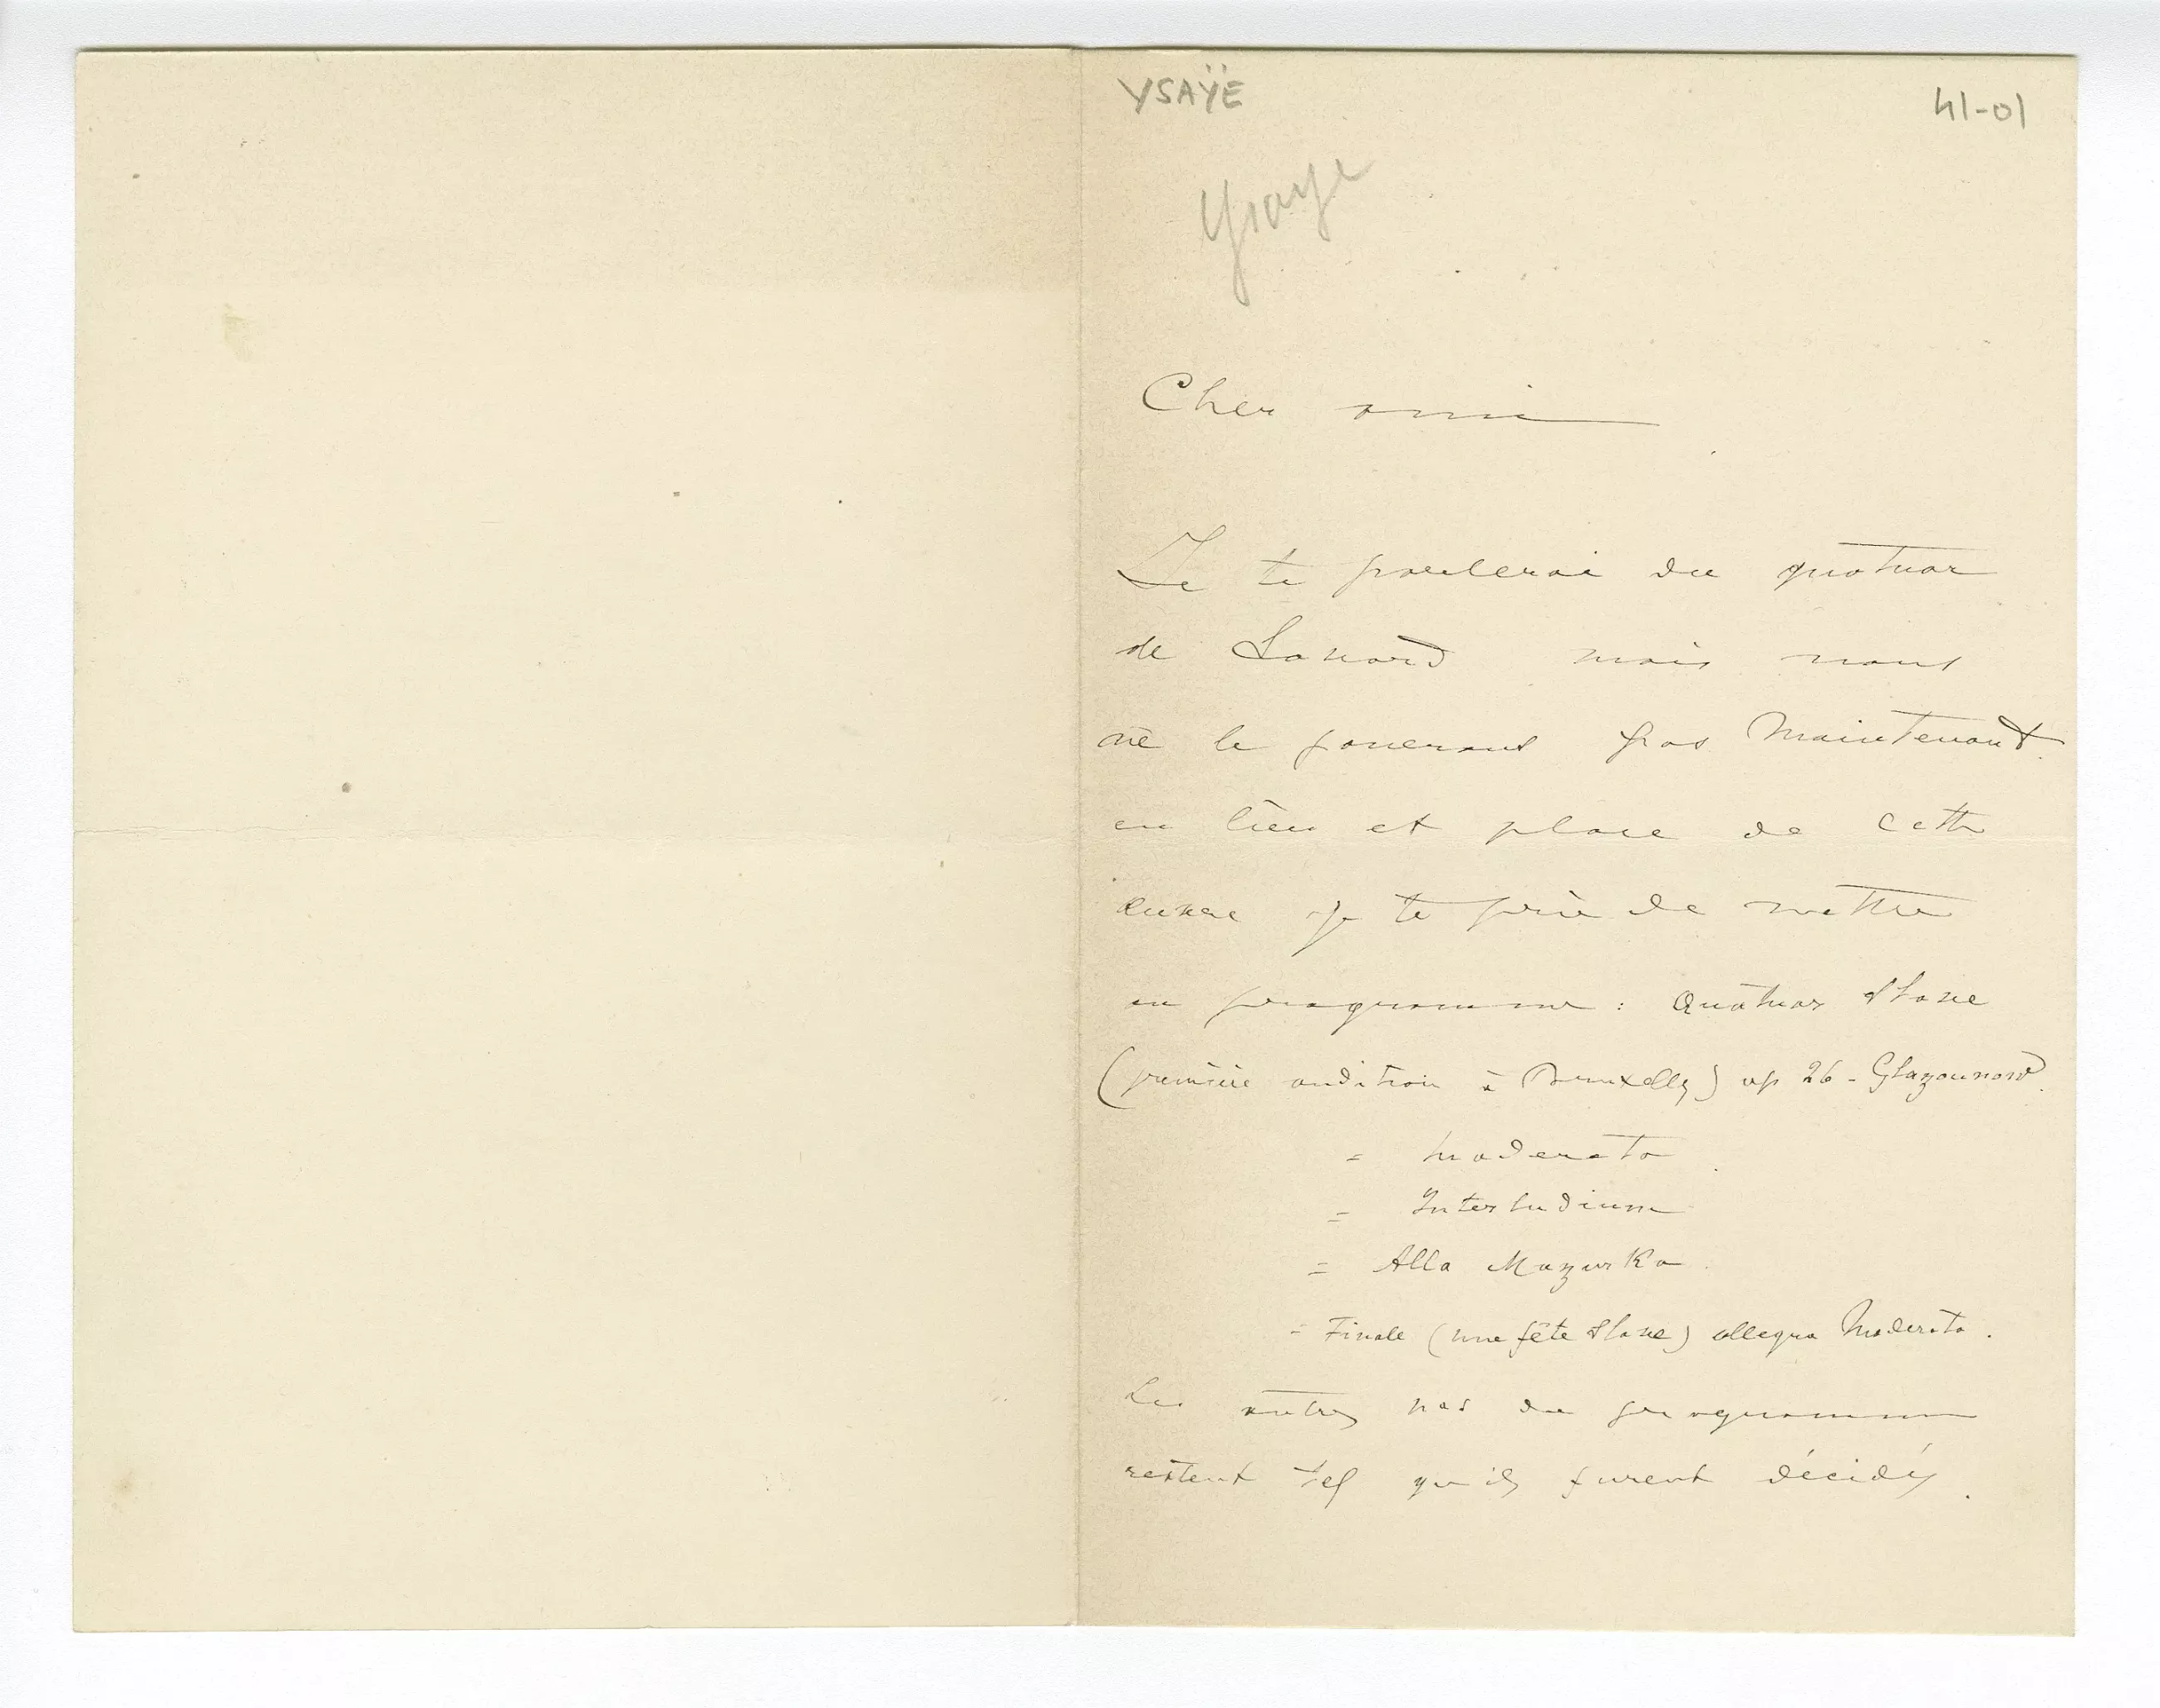 YSAŸE
41-01
Ysaye
Cher ami
Je te parlerai du quatuor
de Savard mais nous
ne le jouerons pas Maintenant.
en lieu et place de cette
je te prie de mettre
au programme : Quatuor Slave
(première audition à Bruxelles) op 26 - Glazounow.
= Moderato
= Interludium
= Alla Mazurka
= Finale (une fête Slave) allegro Moderato.
Les autres nos du programme
restent tels qu'ils furent décidés.